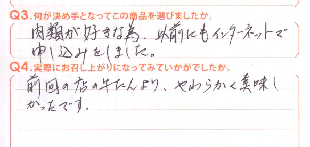 Q3.何が決め手となってこの商品を選びましたか。
肉類が好きな為、以前にもインターネットで
申し込みをしました。
Q4.実際にお召し上がりになってみていかがでしたか。
前回の店の牛たんより、やわらかく美味し
かったです。